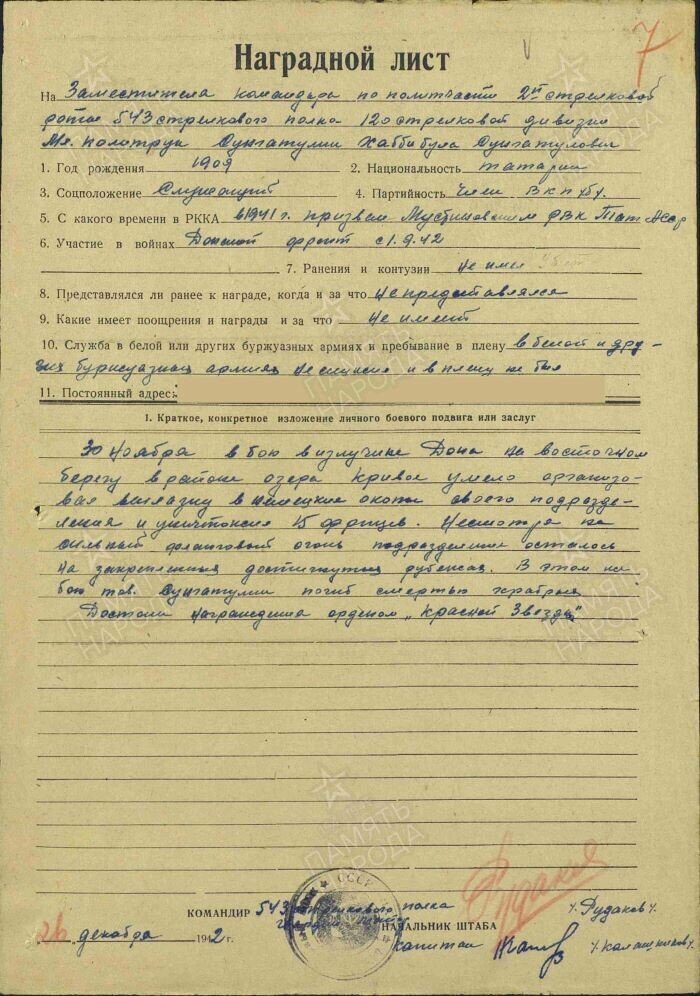 7
Наградной лист
На Заместителя командира по политчасти 2й стрелковой
роты 543 стрелкового полка 120 стрелковой дивизии
Мл. политрук Сунгатулин Хаббибула Сунгатулович
1. Год рождения 1909 2. Национальность татарин
3. Соцположение Служащий 4. Партийность Член ВКП/б/.
5. С какого времени в РККА в 1941 г. призван РВК Тат АССР
6. Участие в войнах Донской фронт с 1.9.42
7. Ранения и контузии не имеет
8. Представлялся ли ранее к награде, когда и за что не представлялся
9. Какие имеет поощрения и награды и за что не имеет
10. Служба в белой или других буржуазных армиях и пребывание в плену в белой и дру-
гих буржуазных армиях не служил и в плену не был
11. Постоянный адрес:
1. Краткое, конкретное изложение личного боевого подвига или заслуг
30 ноября в бою в излучине Дона на восточном
берегу в районе озера Кривое умело организо-
вал вылазку в немецкие окопы своего подразде-
ления и уничтожил 15 фрицев. Несмотря на
сильный фланговый огонь подразделение осталось
на закрепленных достигнутых рубежах. В этом же
бою тов. Сунгатулин погиб смертью храбрых
Достоин награждения орденом „Красной Звезды"
СССР
КОМАНДИР 543 стрелкового полка
Рудаков
/Рудаков/.
НАЧАЛЬНИК ШТАБА
26 декабря 1942 г.
капитан /Калашников/.
ПАМЯТЬ НАРОДА